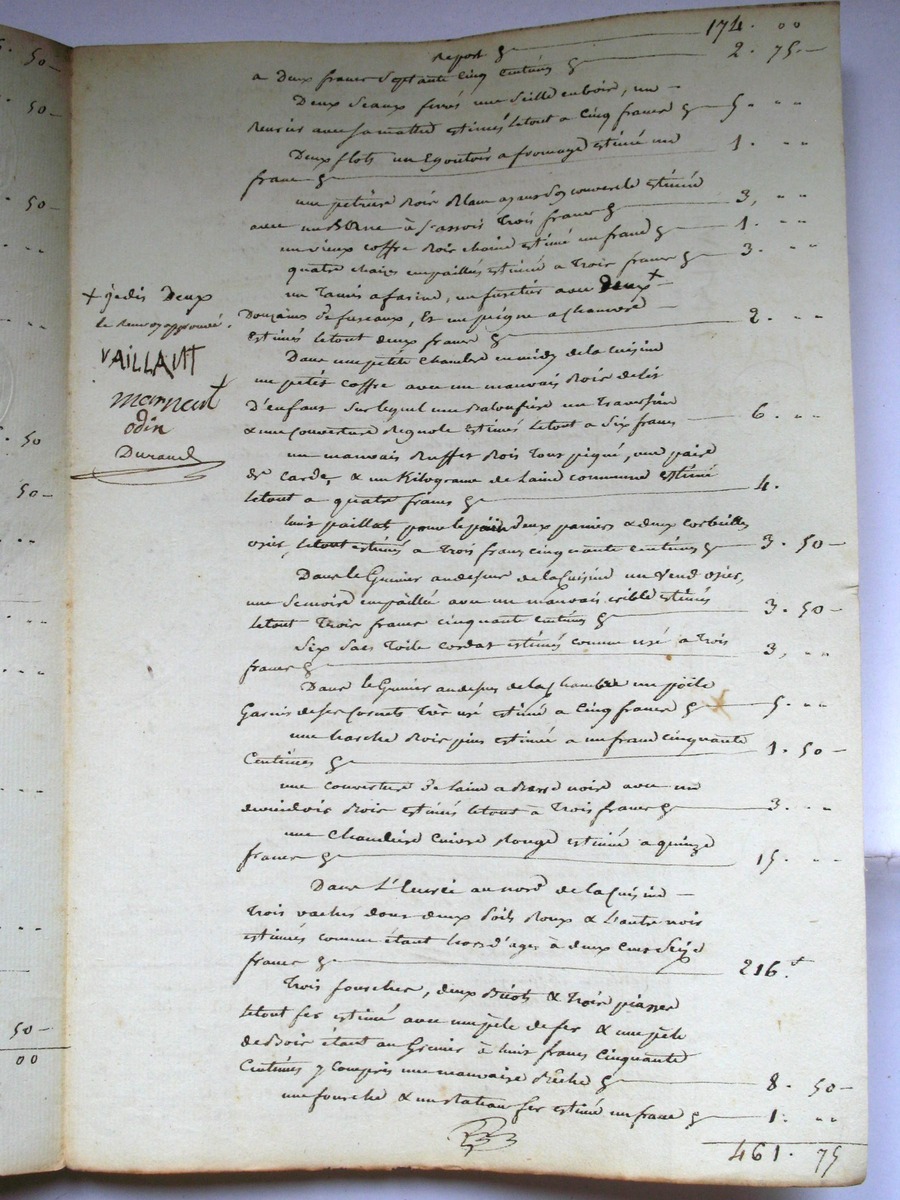 Report 174. 00
a Deux francs Septante Cinq Centimes 2. 75.
Deux Seaux ferrés une Seille en bois, un
estimés le tout a Cinq francs 5. " "
Deux un Egoutoir a fromage estimé un
franc 1. " "
une petriere Bois Blanc ayant son couvercle estimée
avec un à S'assoir Trois francs 3, " "
un vieux coffre Bois chaine estimé un franc 1. " "
quatre chaises empaillés estimée a Trois francs 3. " "
un Tamis a farine, un avec Deux +
Douzaine de fuseaux, Et un peigne a chanvre
estimés le tout deux francs 2. " "
Dans une petite Chambre en midy de la Cuisine
un petit coffre avec un mauvais Bois de lit
D'enfant Sur lequel une un Traversin
& une Couverture estimés le tout a Six francs 6. " "
un mauvais Buffet Bois Tout piqué, une paire
de Cardes & un Kilograme de Laine commune estimé
le tout a quatre francs 4.
huit paillat pour le pain deux paniers & deux Corbeilles
osier, le tout estimés a Trois francs cinquante centimes 3. 50
Dans le Grenier au dessus de la Cuisine un Vend osier,
une Semoire empaillée avec un mauvais crible estimés
le tout Trois francs cinquante centimes 3. 50
Six Sacs Toile estimés comme usé a Trois
francs 3, " "
Dans le Grenier au dessus de la Chambre un poile
Garnis de ses Cornets Très usé estimé a Cinq francs 5. " "
une harche Bois pin estimée a un franc cinquante
Centimes 1. 50
une couverture de Laine a Barre noire avec un
Bois estimés le tout à Trois francs 3. " "
une Chaudière Cuivre Rouge estimée a quinze
francs 15. " "
Dans L'Ecurie au nord de la Cuisine
Trois vaches dont deux Poils Roux & L'autre noir
estimées comme étant hors d'ages à deux cent Seize
francs 216.
Trois fourches, deux & Trois
le tout fer estimé avec une pèle de fer & une pèle
de Bois étant au Grenier à huit francs Cinquante
Centimes y Compris une mauvaise Bêche 8. 50
une fourche & un fer estimé un franc 1. " "
461. 75
+ je dis Deux
le Renvoy approuvé.
VAILLANT
odin
Durand
50
50
50
50
50
50
00